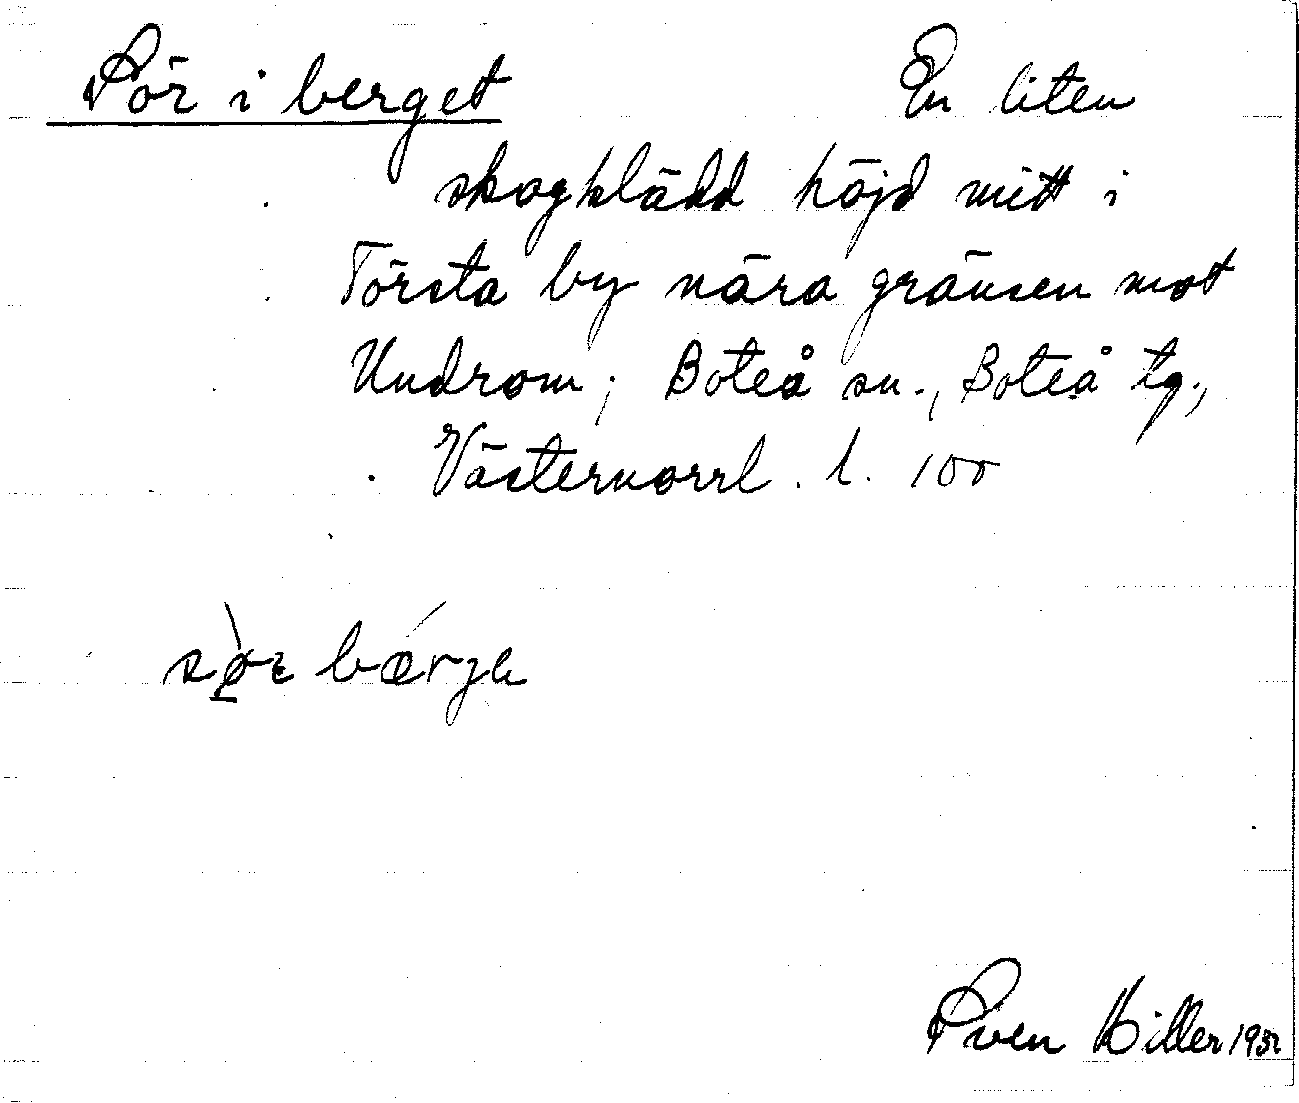 Sör i berget
En liten
skogklädd höjd mitt i
Törsta by nära gränsen mot
Undrom; Boteå sn., Boteå tg.,
Västernorrl. l. 100
Sven Hiller 1932